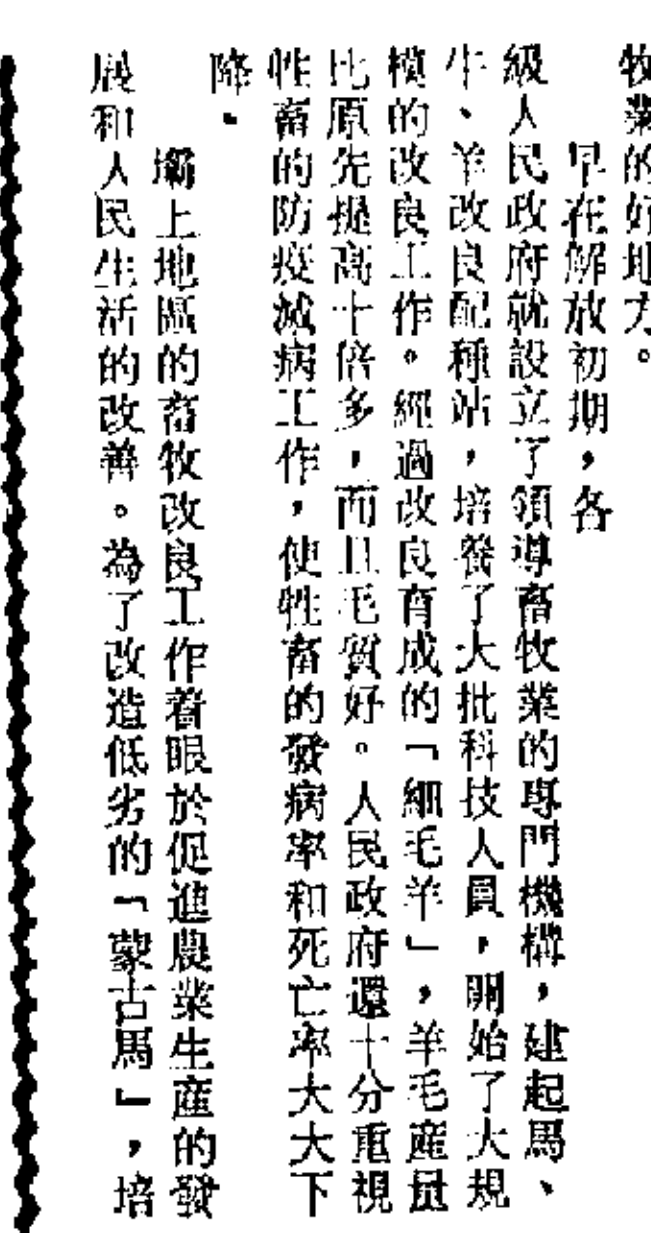 牧業的好地方。
早在解放初期，各
級人民政府就設立了領導畜牧業的專門機構，建起馬、
牛、羊改良配種站，培養了大批科技人員，開始了大規
模的改良工作。經過改良育成的「細毛羊」，羊毛產量
比原先提高十倍多，而且毛質好。人民政府還十分重視
牲畜的防疫滅病工作，使牲畜的發病率和死亡率大大下
降。
壩上地區的畜牧改良工作着眼於促進農業生產的發
展和人民生活的改善。為了改造低劣的「蒙古馬」，培